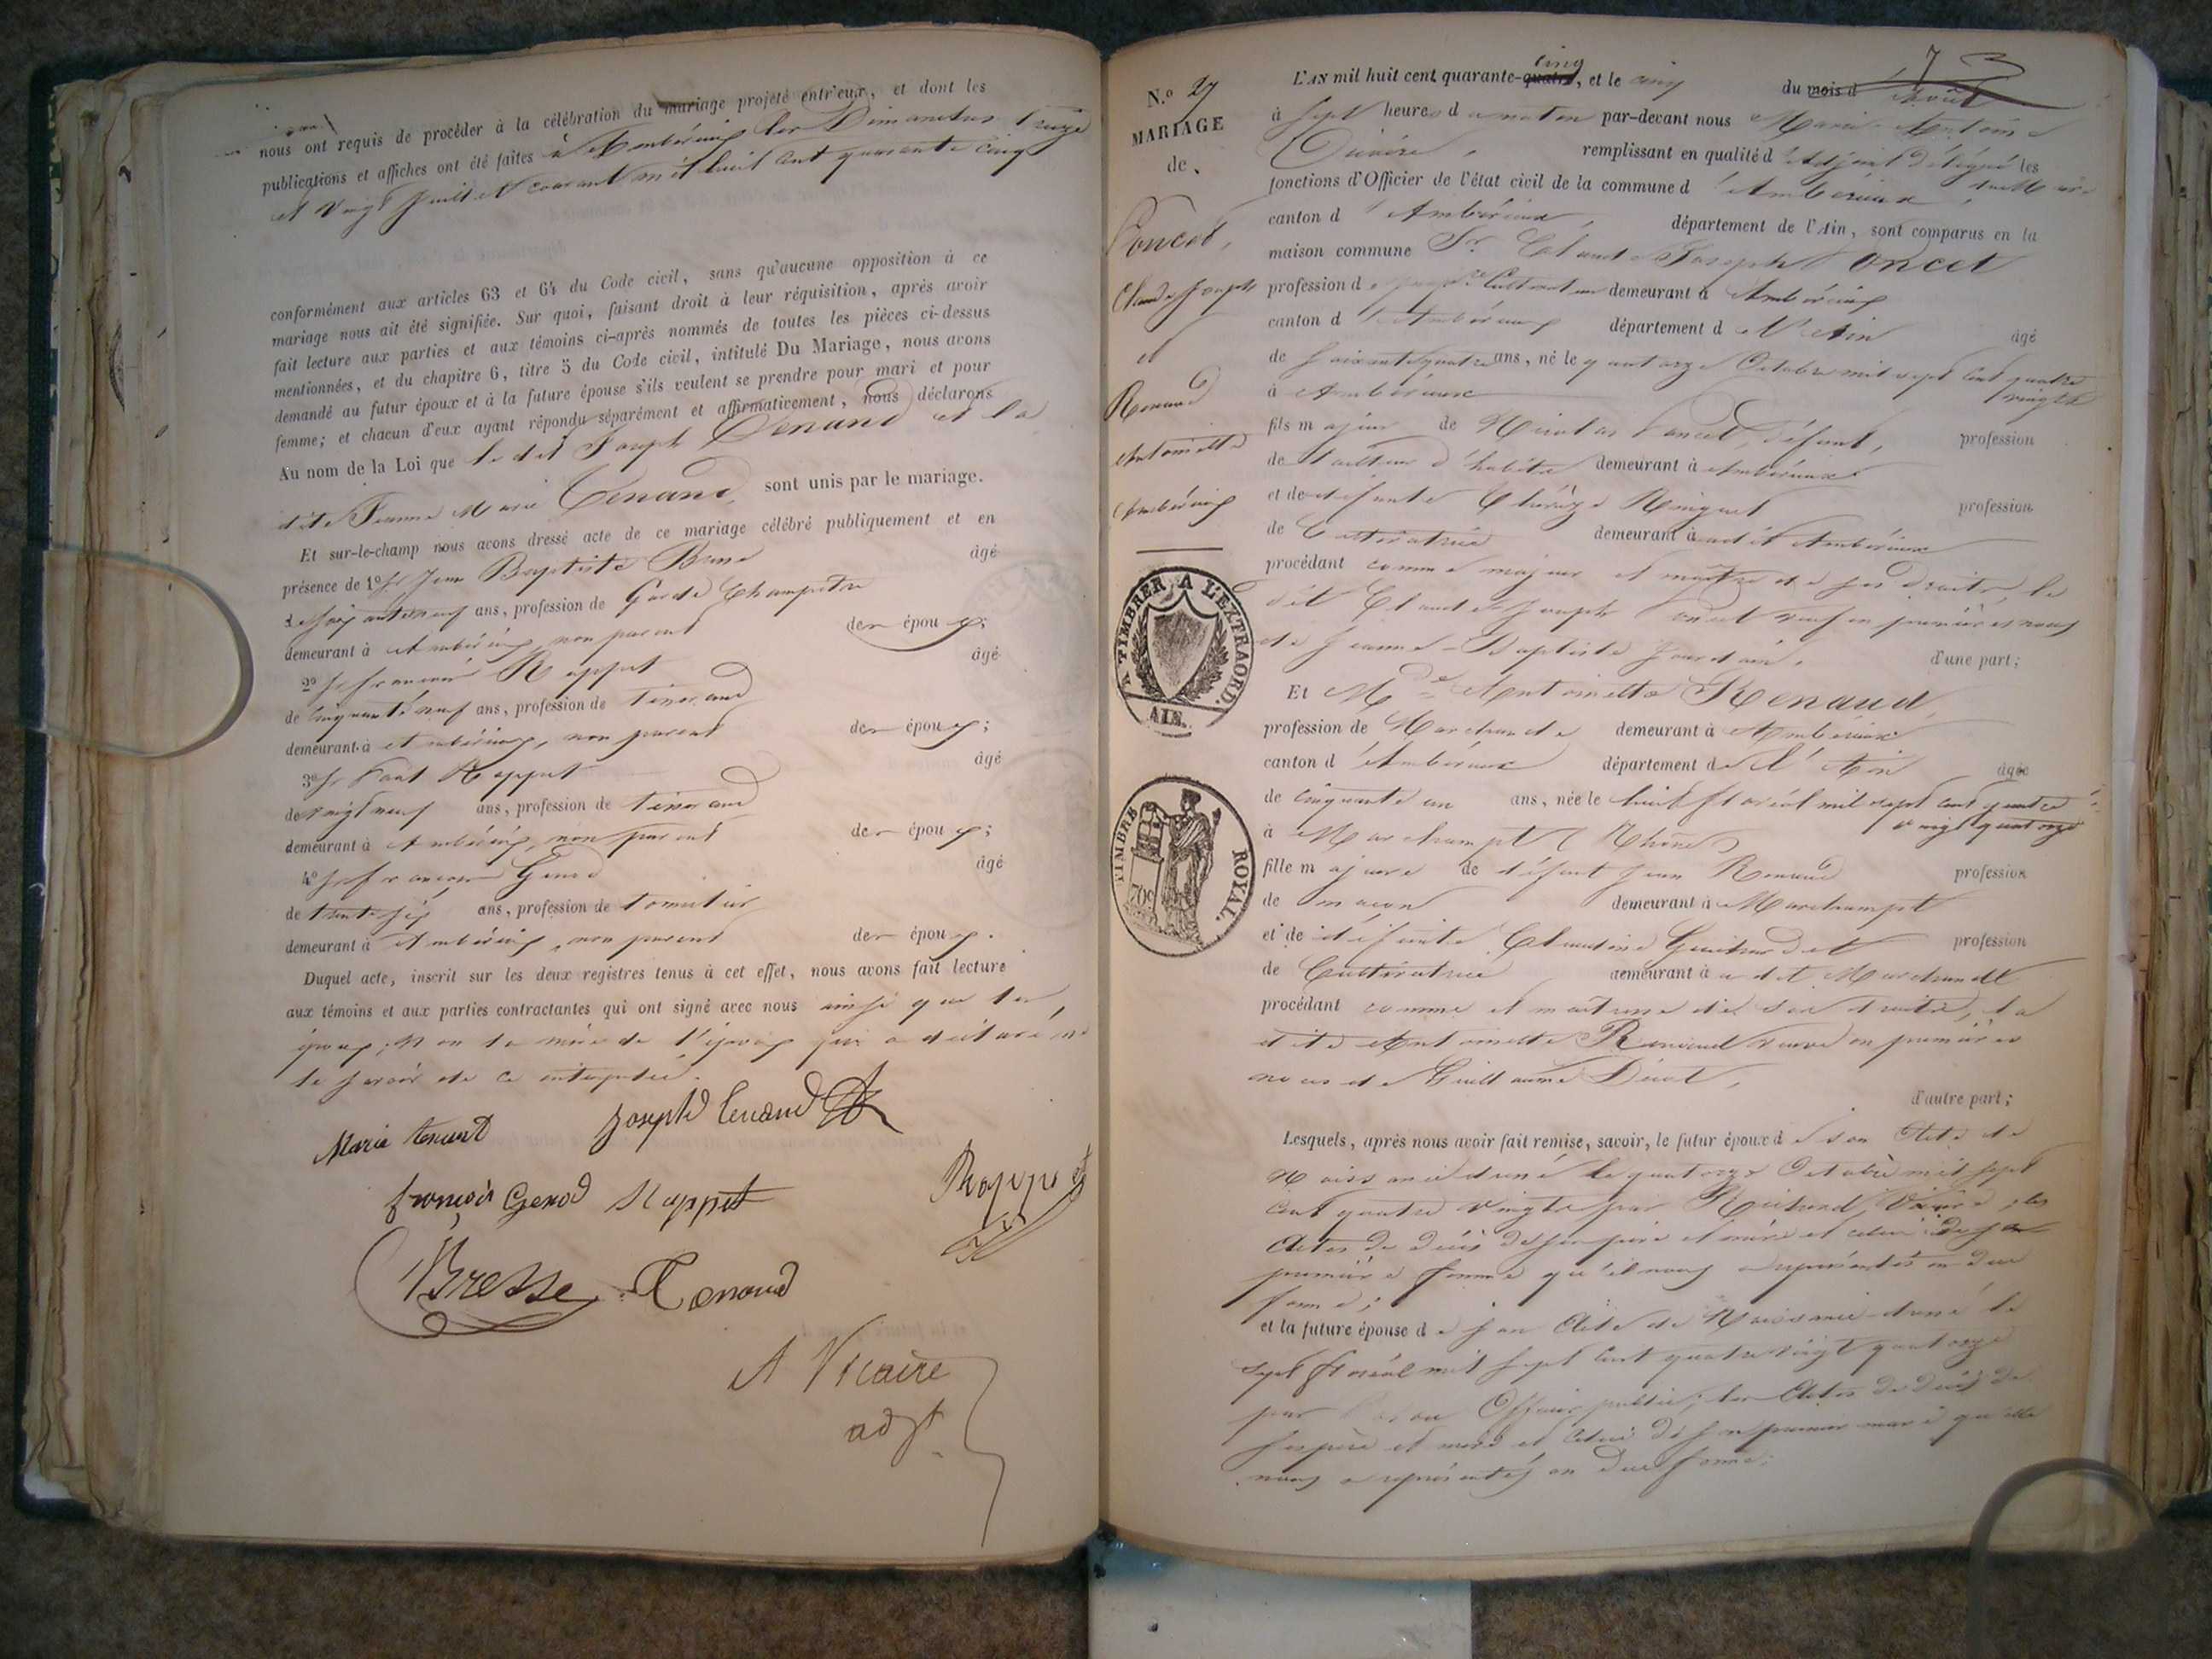 nous ont requis de procéder à la célébration du mariage projeté entr'eux, et dont les
publications et affiches ont été faites à Ambérieux les Dimanches treize
et vingt Juillet courant mil huit cent quarante cinq
conformément aux articles 63 et 64 du Code civil, sans qu'aucune opposition à ce
mariage nous ait été signifiée. Sur quoi, faisant droit à leur réquisition, après avoir
fait lecture aux parties et aux témoins ci-après nommés de toutes les pièces ci-dessus
mentionnées, et du chapitre 6, titre 5 du Code civil, intitulé Du Mariage, nous avons
demandé au futur époux et à la future épouse s'ils veulent se prendre pour mari et pour
femme; et chacun d'eux ayant répondu séparément et affirmativement, nous déclarons
Au nom de la Loi que le dit Joseph Tenand et la
dite Jeanne Marie Tenand, sont unis par le mariage.
Et sur-le-champ nous avons dressé acte de ce mariage célébré publiquement et en
présence de 1º Sr Jean Baptiste âgé
de soixante neuf ans, profession de Garde Champêtre
demeurant à Ambérieux, non parent des époux;
2º Sr François Rappet âgé
de cinquante neuf ans, profession de tisserand
demeurant à Ambérieux, non parent des époux;
3º Sr Paul Rappet âgé
de vingt neuf ans, profession de tisserand
demeurant à Ambérieux, non parent des époux;
4º Sr François Genod âgé
de trente six ans, profession de
demeurant à Ambérieux, non parent des époux.
Duquel acte, inscrit sur les deux registres tenus à cet effet, nous avons fait lecture
aux témoins et aux parties contractantes qui ont signé avec nous ainsi que les
époux, non la mère de l'époux qui a déclaré ne
le savoir de ce interpellée.
Marie tenand Joseph tenand
françois Genod Rappet Rappet
Bresse Tenand
A Vicaire
adjt
73
N.º 27
MARIAGE
de
Poncet,
Claude Joseph
et
Renaud
Antoinette
Ambérieux
A TIMBRER A L'EXTRAORD.
AIN.
TIMBRE ROYAL.
70c
L'AN mil huit cent quarante-quatre cinq, et le cinq du mois d'Août
à sept heures du matin par-devant nous Marie Antoine
Vicaire, remplissant en qualité d'Adjoint délégué les
fonctions d'Officier de l'état civil de la commune d'Ambérieux,
canton d'Ambérieux, département de l'Ain, sont comparus en la
maison commune Sr Claude Joseph Poncet
profession de Cultivateur demeurant à Ambérieux
canton d'Ambérieux département de l'Ain âgé
de soixante quatre ans, né le quatorze Octobre mil sept cent quatre
vingts
à Ambérieux
fils majeur de Nicolas Poncet, défunt, profession
de tailleur d'habits demeurant à Ambérieux
et de défunte Thérèze profession
de Cultivatrice demeurant audit Ambérieux
procédant comme majeur et maître de ses droits, le
dit Claude Joseph Poncet veuf en premières noces
de Jeanne-Baptiste Jourdain. d'une part;
Et Mde Antoinette Renaud,
profession de Marchande demeurant à Ambérieux
canton d'Ambérieux département de l'Ain âgée
de cinquante un ans, née le huit floréal mil sept cent quatre
vingt quatorze
à Marchampt (Rhône)
fille majeure de défunt Jean Renaud profession
de maçon demeurant à Marchampt
et de défunte Claudine profession
de Cultivatrice demeurant audit Marchampt
procédant comme et maîtresse de ses droits, la
dite Antoinette Renaud veuve en premières
noces de Guillaume
d'autre part;
Lesquels, après nous avoir fait remise, savoir, le futur époux de son Acte de
Naissance donné le quatorze Octobre mil sept
cent quatre vingts par Richard, Vicaire; les
Actes de décès de son père et mère et celui de sa
première femme qu'il nous a représentés en due
forme;
et la future épouse de son Acte de Naissance donné le
sept floréal mil sept cent quatre vingt quatorze
par Officier public; les Actes de décès de
ses père et mère et celui de son premier mari qu'elle
nous a représentés en due forme;